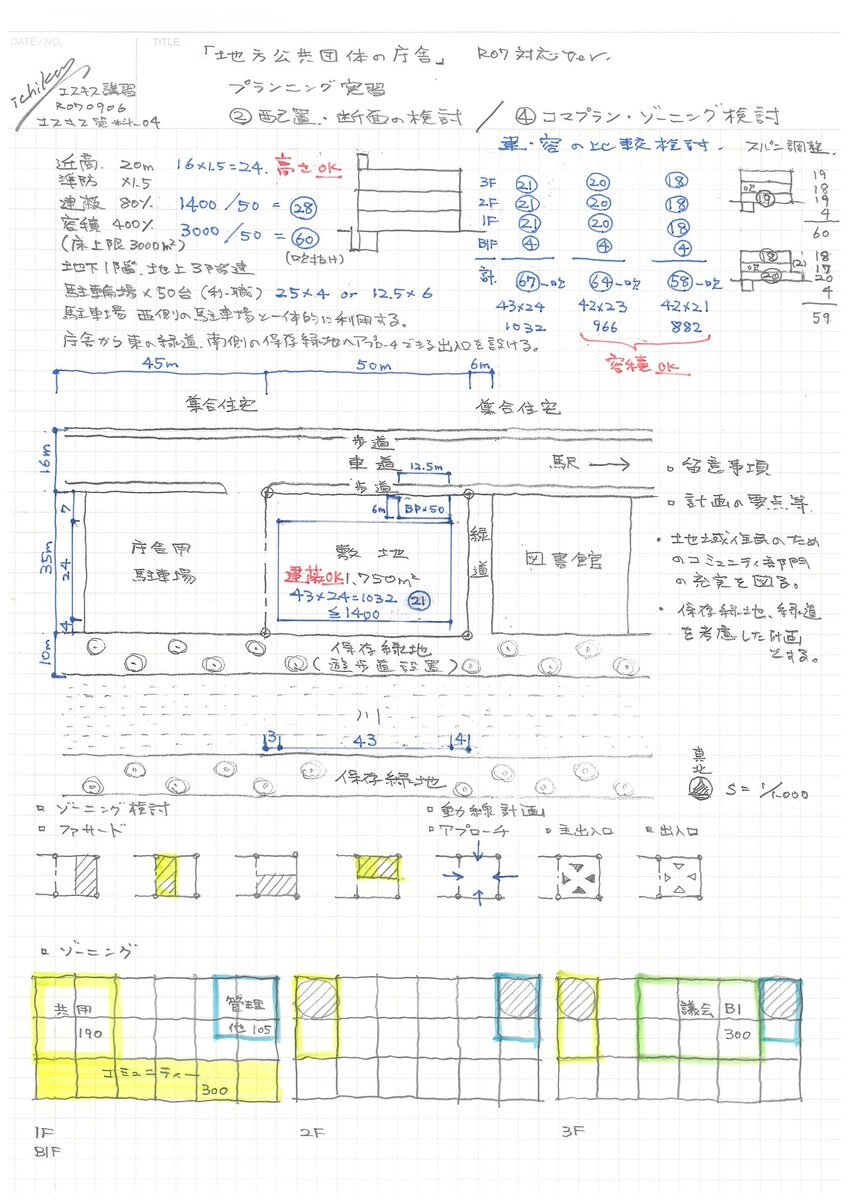 DATE / NO.
TITLE
「地方公共団体の庁舎」 R07対応ver.
ichikou
エスキス講習
R070906
エスキス資料-04
プランニング実習
②配置・断面の検討 / ④コマプラン・ゾーニング検討
近商 20m 16×1.5=24. 高さOK
準防 ×1.5
建蔽 80% 1400/50=㉘
容積 400% 3000/50=60
(床上限3000m²) (吹抜け)
地下1階、地上3階建
駐輪場×50台 (利・職) 25×4 or 12.5×6
駐車場 西側の駐車場と一体的に利用する。
庁舎から東の緑道、南側の保存緑地へアプローチできる出入口を設ける。
建・容の比較検討.
3F ㉑ ⑳ ⑱
2F ㉑ ⑳ ⑱
1F ㉑ ⑳ ⑱
B1F ④ ④ ④
計. 67-吹 64-吹 58-吹
43×24 42×23 42×21
1032 966 882
容積OK
スパン調整.
吹 ⑲
19
18
19
4
60
⑱ (2)
吹 ⑳
18
17
20
4
59
45m 50m 6m
集合住宅 集合住宅
16m
歩道
車道
歩道
12.5m
駅 →
6m BP×50
7
35m
24
4
10m
庁舎用
駐車場
敷地
建蔽OK 1.750m²
43×24=1032 ㉑
≦1400
緑道
図書館
保存緑地
(遊歩道設置)
川
3 43 4
保存緑地
留意事項
計画の要点等
・地域住民のため
のコミュニティ部門
の充実を図る。
・保存緑地、緑道
を考慮した計画
とする。
真北
S=1/1.000
ゾーニング検討
ファサード
動線計画
アプローチ
主出入口
出入口
ゾーニング
共用
190
管理
他 105
コミュニティー
300
議会 B1
300
1F
B1F
2F
3F